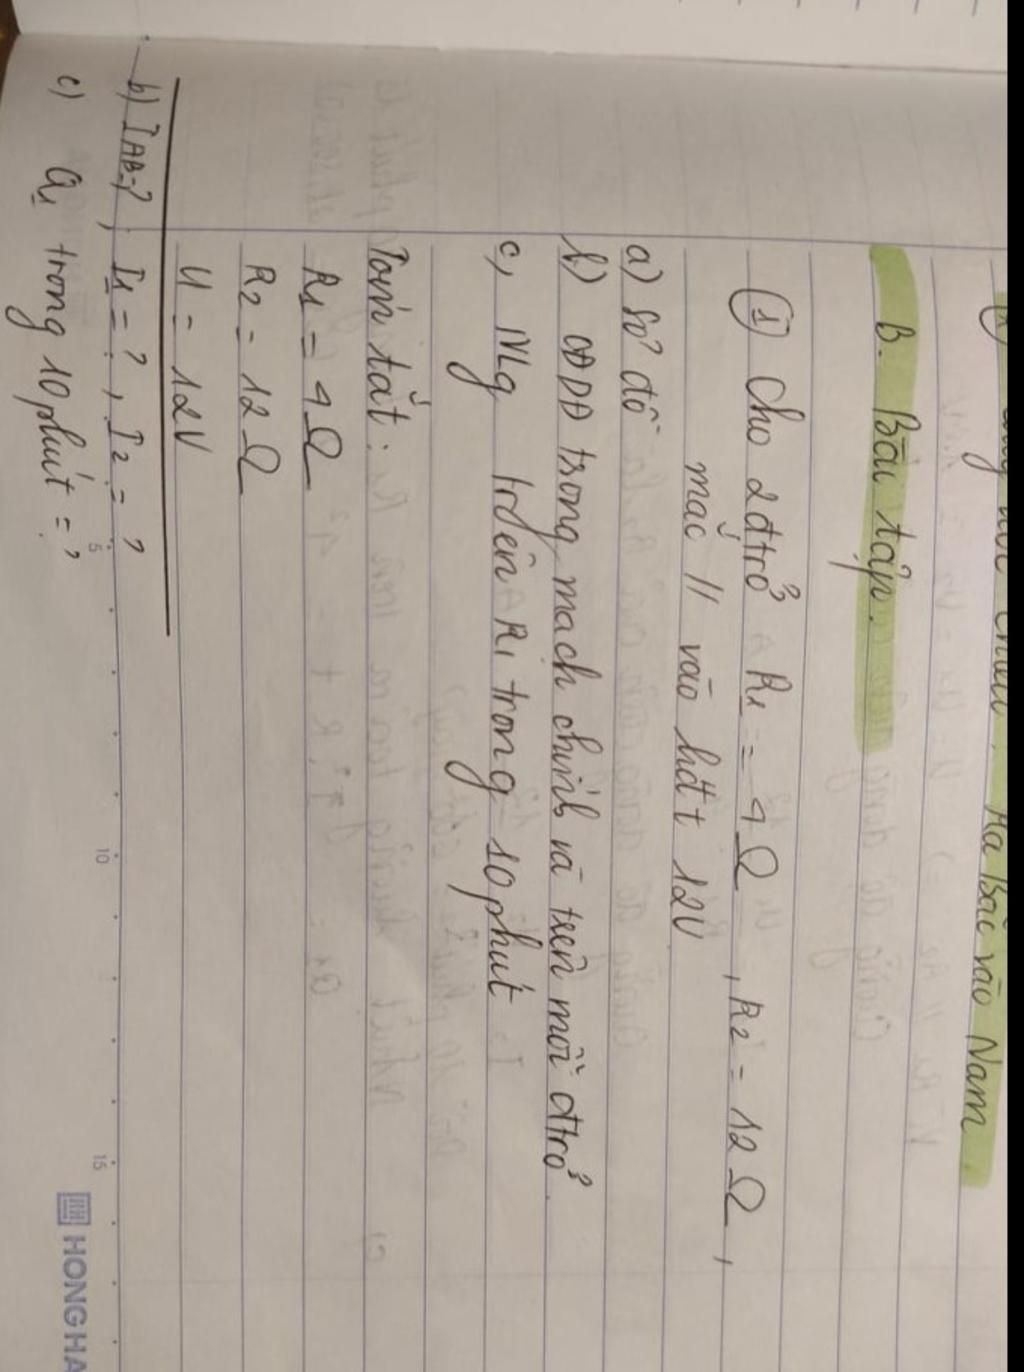 Ra Bắc vào Nam
B. Bài tập.
① Cho 2 đtrở R1 = 4Ω, R2 = 12Ω,
mắc // vào hđt 12V
a) Sơ đồ
b) CĐDĐ trong mạch chính và trên mỗi đtrở.
c, NLg trên R1 trong 10 phút
Tóm tắt:
R1 = 4Ω
R2 = 12Ω
U = 12V
b) IAB=?, I1 = ?, I2 = ?
c) Q1 trong 10 phút = ?
5 10 15
HONG HA